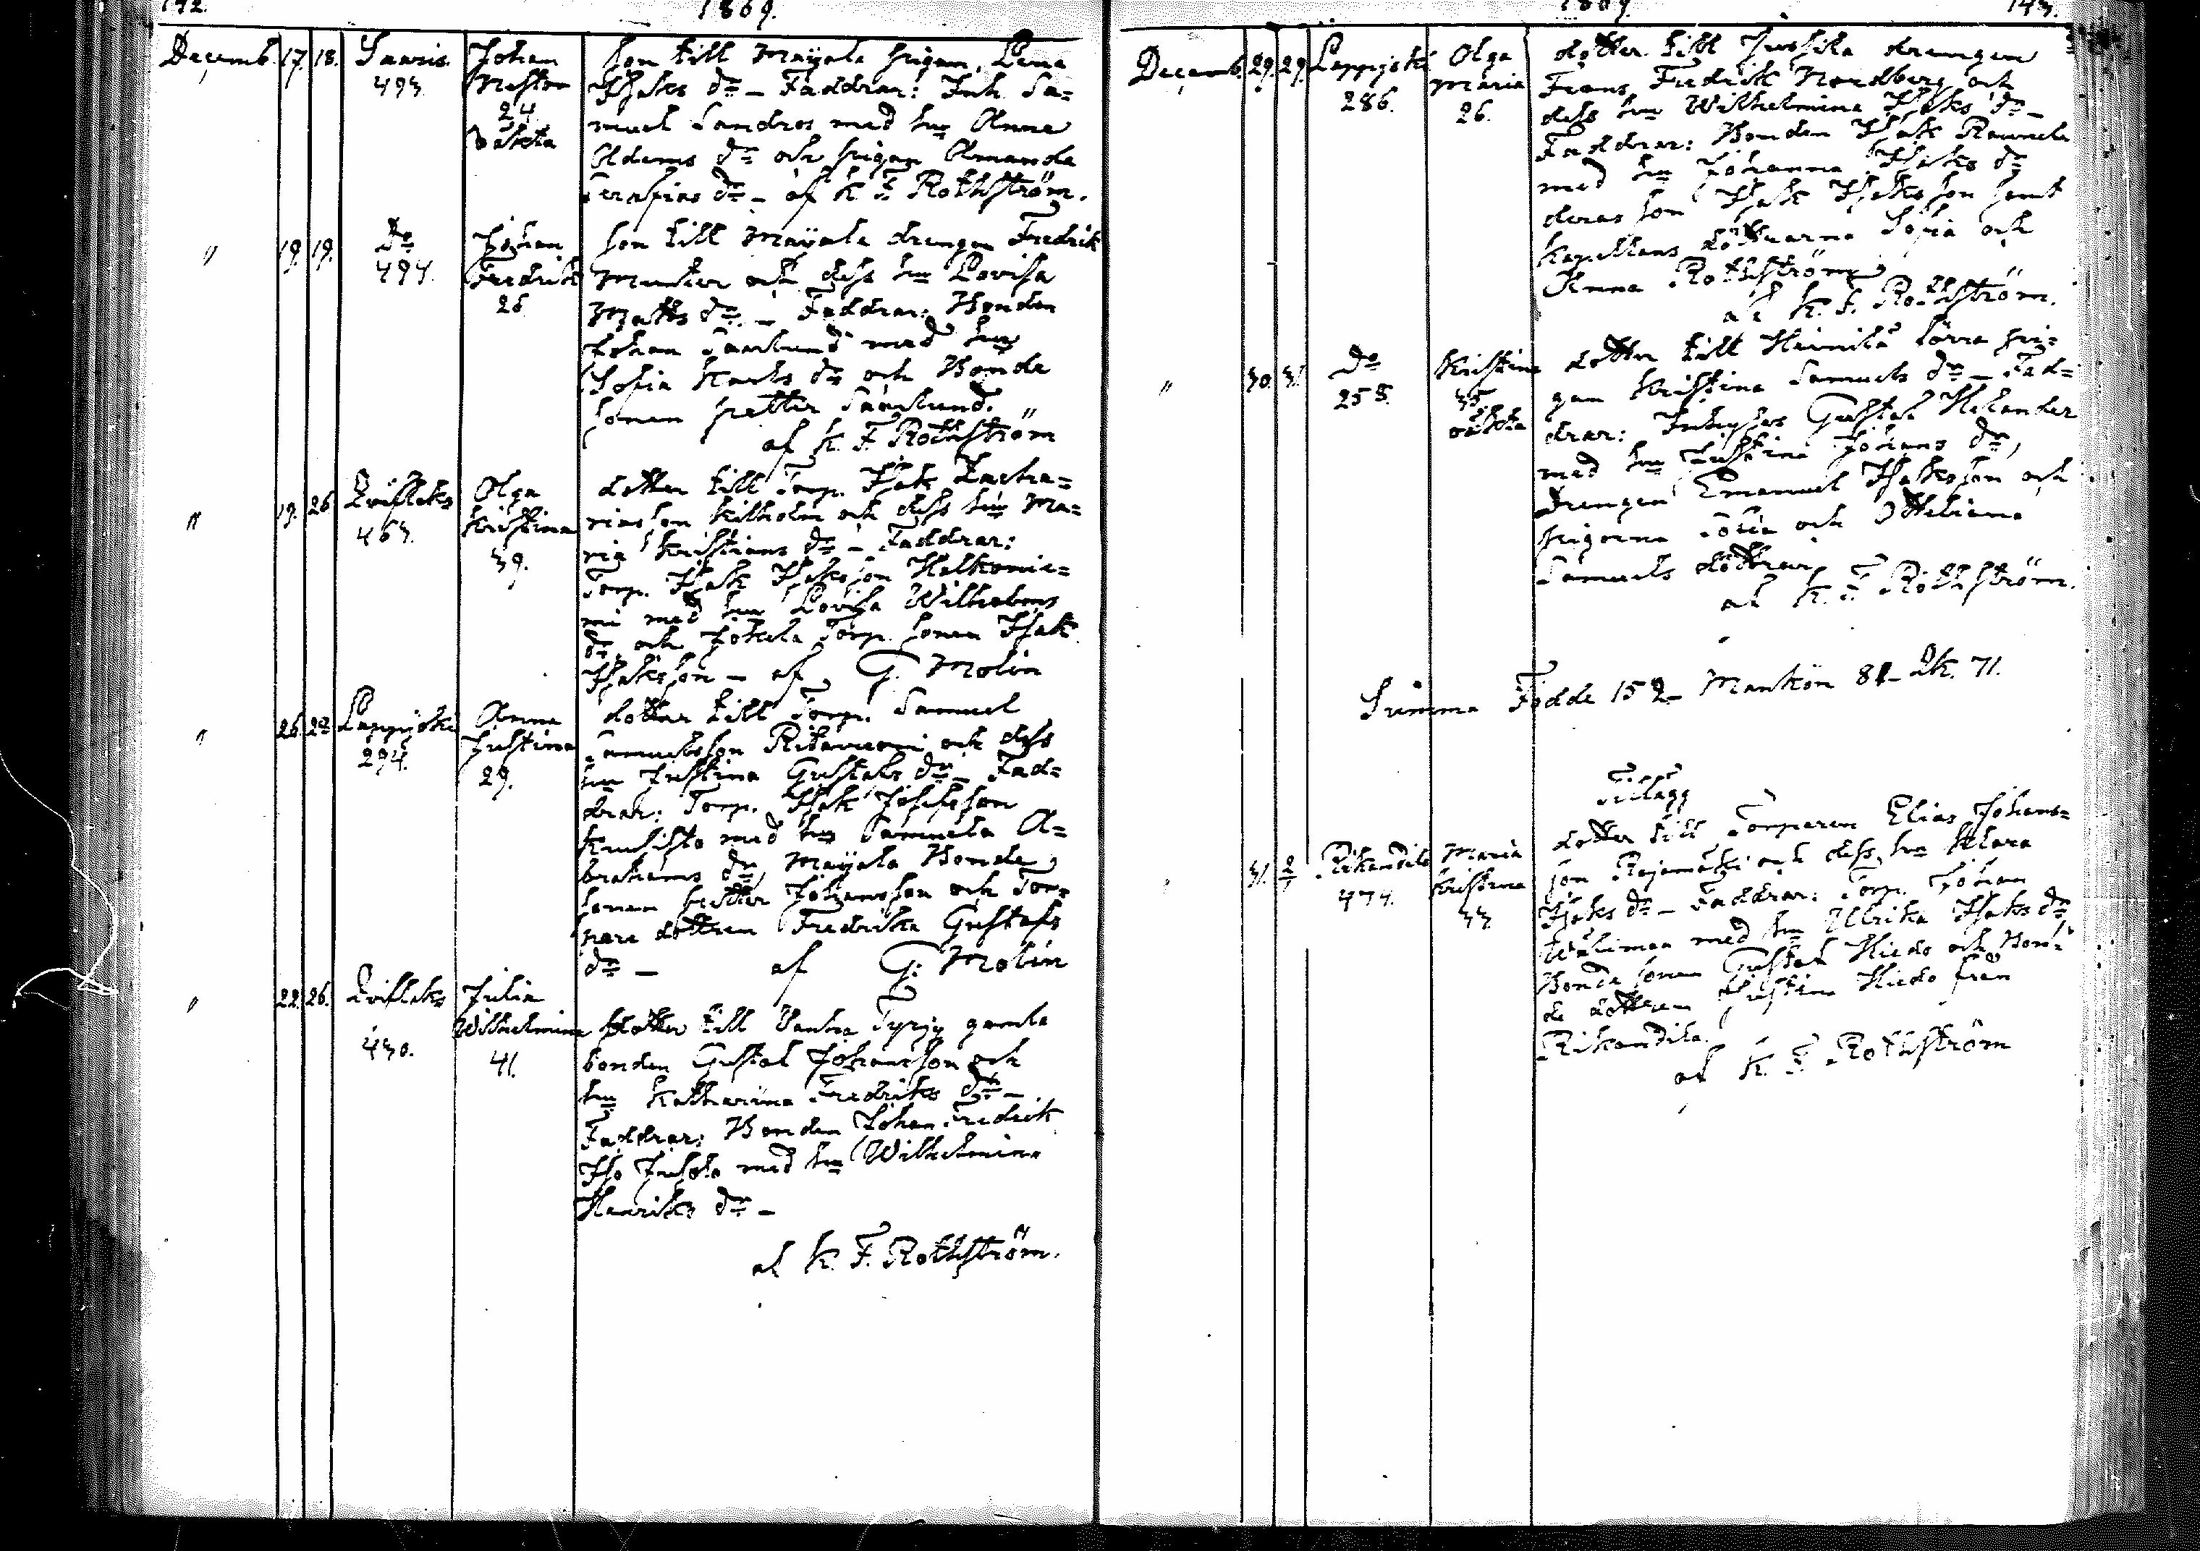 142. 1869.
Decemb. 17. 18. Saaris 493. Johan Nestor 24 oäkta
son till Mäyälä pigan, Lena
Isaks dr – Faddrar: Inh. Sa=
muel Sandros med hu Anna
Adams dr och pigan Amanda
Serafias dr – af K F Rothström.
" 19. 19. Do 494. Johan Fredrik 26
son till Mäyälä drengen Fredrik
Munter och dess hu Lovisa
Matts dr – Faddrar: Bonden
Johan Saarlund med hu
Sofia Karls dr och Bonde
sonen Petter Saarlund.
af K. F. Rothström
" 19. 26 Qviflaks 463. Olga Kristina 39.
dotter till Torp. Isak Zacha=
riasson Kilholm och dess hu Ma=
ria Kristians dr – Faddrar:
Torp. Isak Isaksson Halkonie=
mi med hu Lovisa Wilhelms
dr och Jokela Torp. sonen Isak
Isaksson – af G. Molin
" 26 Lappijoki 294. Anna Justina 29.
dotter till Torp. Samuel
Samuelsson Ritavuori och dess
hu Justina Gustafs dr – Fad=
drar: Torp. Isak Josefsson
Knusisto med hu Samuela A=
brahams dr, Mäyälä Bonde
sonen Petter Johansson och Tor=
pare dottren Fredrika Gustafs
dr – af G. Molin
" 22. 26. Qviflaks 430. Julia Wilhelmina 41.
dotter till Vanha Tyrjy gamla
bonden Gustaf Johansson och
hu Katharina Fredriks dr –
Faddrar: Bonden Johan Fredrik
Iso Jussla med hu Wilhelmina
Henriks dr –
af K. F. Rothström.
1869. 143.
Decemb. 29. 29. Lappijoki 286. Olga Maria 26.
dotter till Jussila drengen
Frans Fredrik Nordberg och
dess hu Wilhelmina Isaks dr –
Faddrar: Bonden Isak Raunela
med hu Johanna Isaks dr
deras son Isak Isaksson samt
Kapellans döttrarna Sofia och
Anna Rothström
af K. F. Rothström.
" 30. 31. Do 258. Kristina 35 oäkta
dotter till Heinilä Torra pi=
gan Kristina Samuels dr – Fad=
drar: Inhyses Gustaf Helander
med hu Justina Johans dr,
Drengen Emanuel Isaksson och
pigorna Sofia och Ottiliana
Samuels döttrar
af K. F. Rothström.
Summa Födde 152 – Mankön 81 – Qk. 71.
Tillägg
" 31. 2/1 Rikandila 474. Maria Kristina 33
dotter till Torparen Elias Johans=
son Rajamäki och dess hu Klara
Isaks dr – Faddrar: Torp. Johan
Wälimaa med hu Ulrika Isaks dr
Bonde sonen Gustaf Hiedo och Bon=
de dottren Justina Hiedo från
Rikandila.
af K. F. Rothström